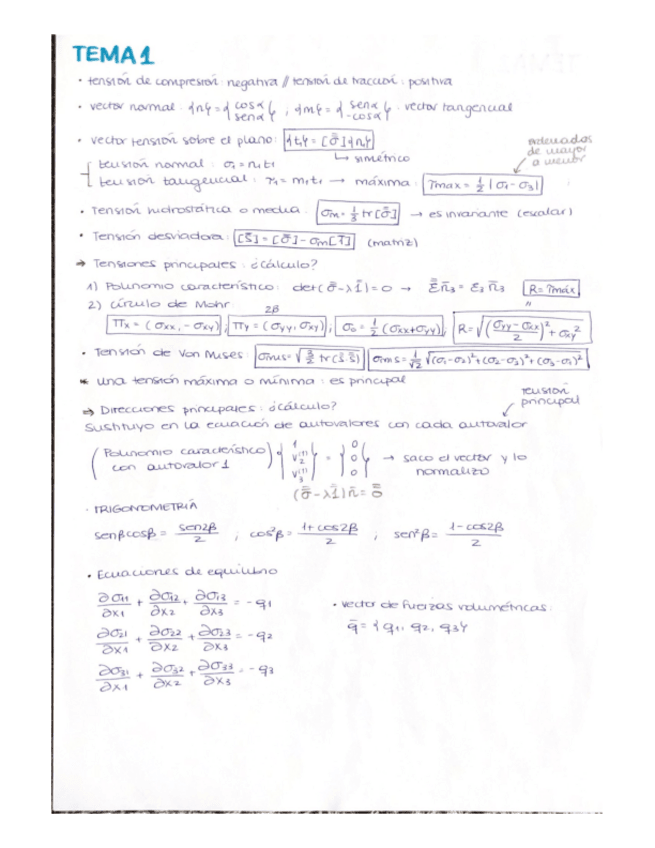 TEMA 1
· tensión de compresión: negativa // tensión de tracción: positiva
· vector normal: {n} = {cosα senα} ; {m} = {senα -cosα} : vector tangencial
· vector tensión sobre el plano: {t} = [σ̿]{n}
↳ simétrico
ordenados de mayor a menor
tensión normal: σ₁ = n₁t₁
tensión tangencial: τ₁ = m₁t₁ → máxima: τmax = 1/2 |σ₁ - σ₃|
· Tensión hidrostática o media: σm = 1/3 tr[σ̿] → es invariante (escalar)
· Tensión desviadora: [S̿] = [σ̿] - σm[1̿] (matriz)
⇒ Tensiones principales: ¿Cálculo?
1) Polinomio característico: det(σ̿ - λ1̿) = 0 → ε̿n̄₃ = ε₃n̄₃ R = τmáx
2) Círculo de Mohr: 2β
Πx = (σxx, -σxy), Πy = (σyy, σxy), σ₀ = 1/2 (σxx + σyy), R = √((σyy - σxx)/2)² + σxy²
· Tensión de Von Mises: σmis = √3/2 tr(S̿·S̿) σms = 1/√2 √(σ₁-σ₂)² + (σ₂-σ₃)² + (σ₃-σ₁)²
* una tensión máxima o mínima: es principal
⇒ Direcciones principales: ¿Cálculo?
tensión principal
Sustituyo en la ecuación de autovalores con cada autovalor
(Polinomio característico con autovalor 1) · {1 V₂⁽¹⁾ V₃⁽¹⁾} = {0 0 0} → saco el vector y lo normalizo
(σ̿ - λ1̿)n̄ = 0̿
· TRIGONOMETRÍA
senβcosβ = sen2β/2 ; cos²β = 1+cos2β/2 ; sen²β = 1-cos2β/2
· Ecuaciones de equilibrio
∂σ₁₁/∂x₁ + ∂σ₁₂/∂x₂ + ∂σ₁₃/∂x₃ = -q₁
· vector de fuerzas volumétricas:
∂σ₂₁/∂x₁ + ∂σ₂₂/∂x₂ + ∂σ₂₃/∂x₃ = -q₂
q̄ = {q₁, q₂, q₃}
∂σ₃₁/∂x₁ + ∂σ₃₂/∂x₂ + ∂σ₃₃/∂x₃ = -q₃